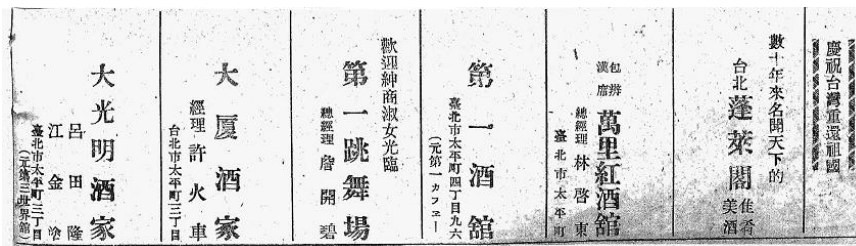 慶祝台灣重還祖國
數十年來名聞天下的
台北 蓬萊閣 佳肴 美酒
包辦 漢席 萬里紅酒館
總經理 林啓東
臺北市太平町
第一酒館
臺北市太平町四丁目九六
(元第一カフヱー)
歡迎紳商淑女光臨
第一跳舞場
總經理 詹開碧
大厦酒家
經理 許火車
台北市太平町三丁目
大光明酒家
呂田隆
江金塗
臺北市太平町三丁目
(元第三世界館)